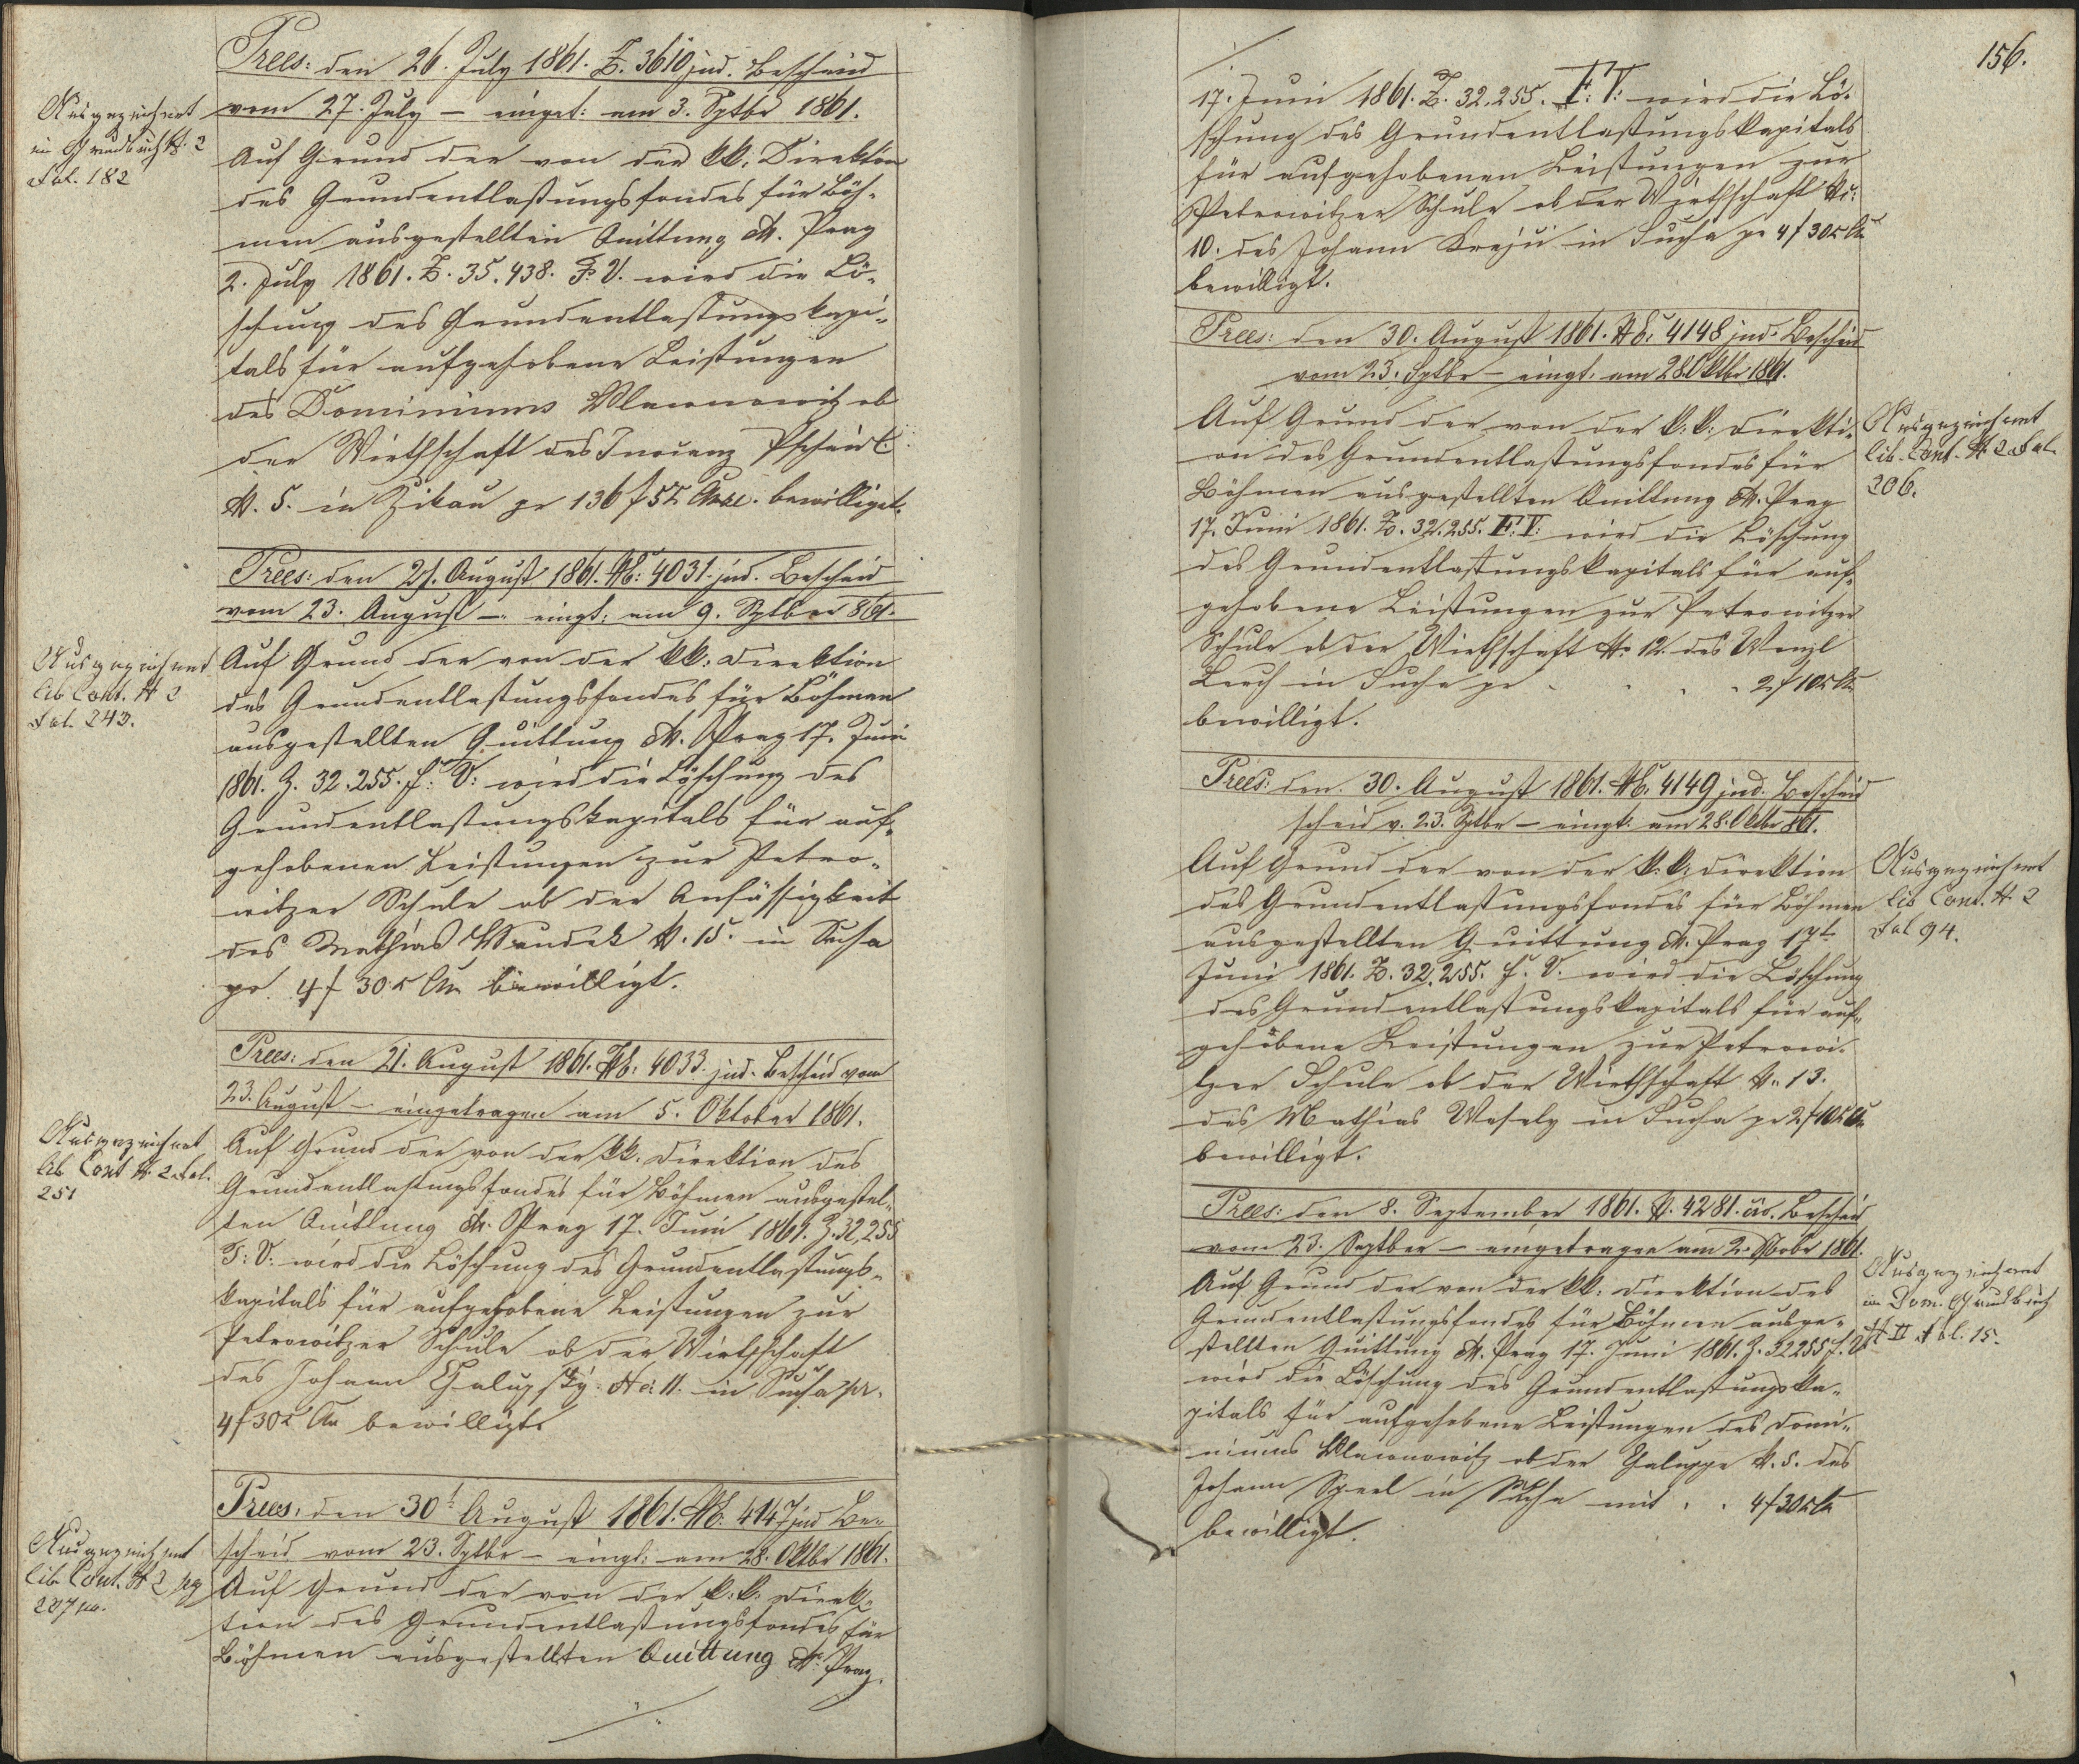 Præs: den 26. July 1861. Z. 3610 jud. Bescheid
vom 27. July – einget: am 3. Sptbr 1861.
Ausgezeichnet
im Grundbuch N. 2
Fol. 182
Auf Grund der von der kk. Direktion
des Grundentlastungsfondes für Böh-
men ausgestellten Quittung dt. Prag
2. July 1861. Z. 35.438. F. V. wird die Lö-
schung des Grundentlastungskapi-
tals für aufgehobene Leistungen
des Dominiums Wlawonowitz ob
der Wirthschaft des
N. 5. in Zikau pr 136 f 52 bewilliget.
Præs: den 21. August 1861. Nr: 4031. jud. Bescheid
vom 23. August – eingt: am 9. Sptber 861.
Ausgezeichnet
lib. Cont. N 2
Fol. 243.
Auf Grund der von der kk: Direktion
des Grundentlastungsfondes für Böhmen
ausgestellten Quittung dt. Prag 17. Juni
1861. Z. 32.255. f: V: wird die Löschung des
Grundentlastungskapitals für auf-
gehobenen Leistungen zur Petro-
witzer Schule ob der Ansässigkeit
des Mathias N. 15. in Sucha
pr 4 f 30 x CM bewilligt.
Præs: den 21. August 1861. Nr: 4033. jud. Bescheid vom
23. August – eingetragen am 5. Oktober 1861.
Ausgezeichnet
lib. Cont N. 2 Fol.
251
Auf Grund der von der kk. Direktion des
Grundentlastungsfondes für Böhmen ausgestel-
ten Quittung dt. Prag 17. Juni 1861. Z. 32,255
F: V: wird die Löschung des Grundentlastungs-
kapitals für aufgehobene Leistungen zur
Petrowitzer Schule ob der Wirthschaft
des Johann Chalupsky No: 11. in Sucha pr.
4 f 30 x CM bewilligt.
Præs: den 30t August 1861. Nr. 4147 jud Be-
scheid vom 23. Sptbr – eingt: am 28. Oktbr 1861.
Ausgezeichnet
lib. Cont. N 2 pg
207
Auf Grund der von der k: k: Direk-
tion des Grundentlastungsfondes für
Böhmen ausgestellten Quittung dt. Prag
156.
17. Juni 1861. Z. 32.255. F: V: wird die Lö-
schung des Grundentlastungskapitals
für aufgehobenen Leistungen zur
Petrowitzer Schule ob der Wirthschaft No:
10. des Johann Krejci in Sucha pr 4 f 30 x CM
bewilligt.
Præs: den 30. August 1861. Nr. 4148 jud. Bescheid
vom 23. Sptbr – eingt. am 28. Oktbr 1861.
Ausgezeichnet
lib. Cont. N. 2 Fol.
206.
Auf Grund der von der k: k: Direkti-
on des Grundentlastungsfondes für
Böhmen ausgestellten Quittung dt. Prag
17. Juni 1861. Z. 32.255. F: V: wird die Löschung
des Grundentlastungskapitals für auf-
gehobene Leistungen zur Petrowitzer
Schule ob der Wirthschaft No 12. des Wenzl
in Sucha pr . . . . 2 f 10 x CM
bewilligt.
Præs: den 30. August 1861. Nr. 4149 jud. Bescheid
scheid v. 23. Sptbr – eingt. am 28. Oktbr 861.
Ausgezeichnet
lib Cont. N. 2
Fol 94.
Auf Grund der von der k: k: Direktion
des Grundentlastungsfondes für Böhmen
ausgestellten Quittung dt. Prag 17t
Juni 1861. Z. 32,255. f. V. wird die Löschung
des Grundentlastungskapitals für auf-
gehobene Leistungen zur Petrowi-
tzer Schule ob der Wirthschaft N. 13.
des Mathias Wesely in Sucha pr 2 f 10 x CM
bewilligt.
Præs: den 8. September 1861. N. 4281. civ. Bescheid
vom 23. Septber – eingetragen am 2. Novbr 1861.
Ausgezeichnet
im Dom. Grundbuch
N II Fol. 15.
Auf Grund der von der kk: Direktion des
Grundentlastungsfondes für Böhmen ausge-
stellten Quittung dt. Prag 17. Juni 1861. Z. 32255 f. V.
wird die Löschung des Grundentlastungska-
pitals für aufgehobene Leistungen des Domi-
niums Wlawonowitz ob der Chaluppe N. 5. des
Johann in Sucha mit . . 4 f 30 x CM
bewilligt.